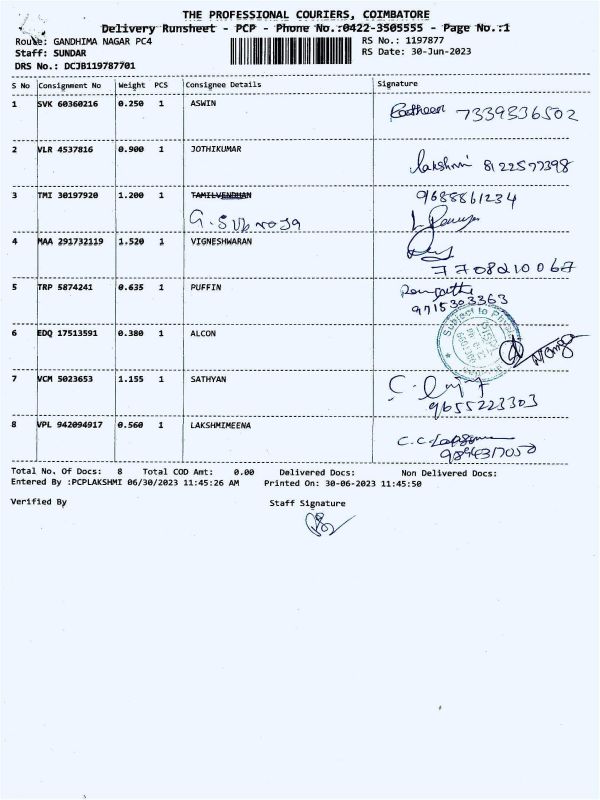 THE PROFESSIONAL COURIERS, COIMBATORE
Delivery Runsheet - PCP - Phone No.:0422-3505555 - Page No.:1
Route: GANDHIMA NAGAR PC4 RS No.: 1197877
Staff: SUNDAR RS Date: 30-Jun-2023
DRS No.: DCJB119787701
S No Consignment No Weight PCS Consignee Details Signature
1 SVK 60360216 0.250 1 ASWIN 7339336502
2 VLR 4537816 0.900 1 JOTHIKUMAR
lakshmi 8122577398
3 TMI 30197920 1.200 1 TAMILVENDHAN 9688861234
G. Subroja
4 MAA 291732119 1.520 1 VIGNESHWARAN
7708210067
5 TRP 5874241 0.635 1 PUFFIN
9715303363
6 EDQ 17513591 0.380 1 ALCON Subject to
7 VCM 5023653 1.155 1 SATHYAN
9655223303
8 VPL 942094917 0.560 1 LAKSHMIMEENA
C.C.
Total No. Of Docs: 8 Total COD Amt: 0.00 Delivered Docs: Non Delivered Docs:
Entered By :PCPLAKSHMI 06/30/2023 11:45:26 AM Printed On: 30-06-2023 11:45:50
Verified By Staff Signature